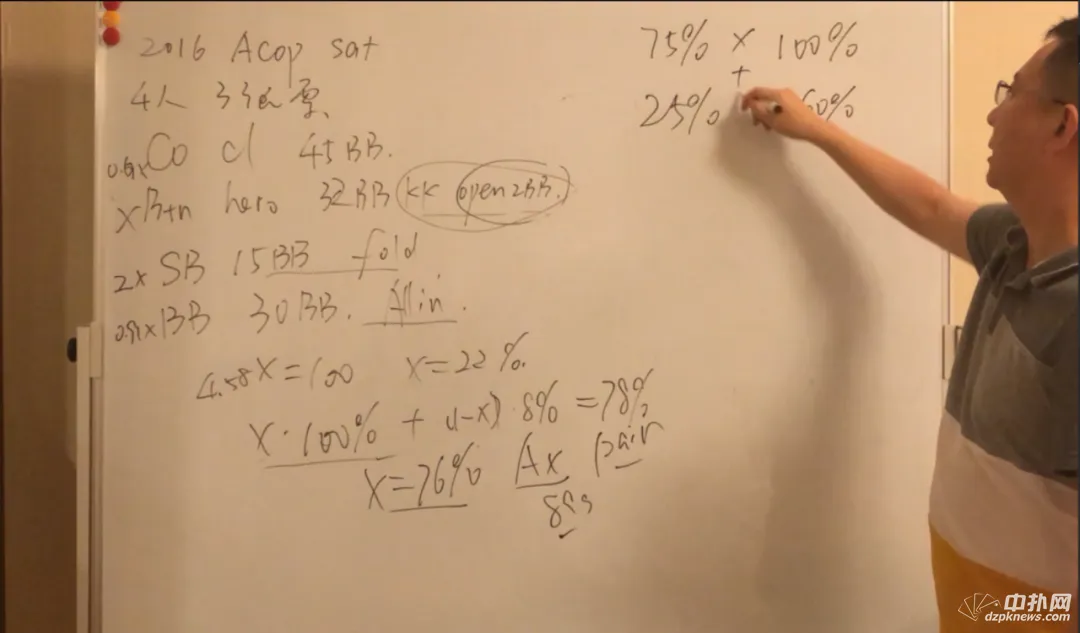 2016 Acop sat
4人 33w票
Co cl 45BB.
x Btn hero 32BB KK open 2BB.
2x SB 15BB fold
BB 30BB. All in.
4.58x=100 x=22%.
x·100% + (1-x) 8% =78%
x=76% Ax pair
89s
75% × 100%
+
25% 60%
中扑网
dzpknews.com